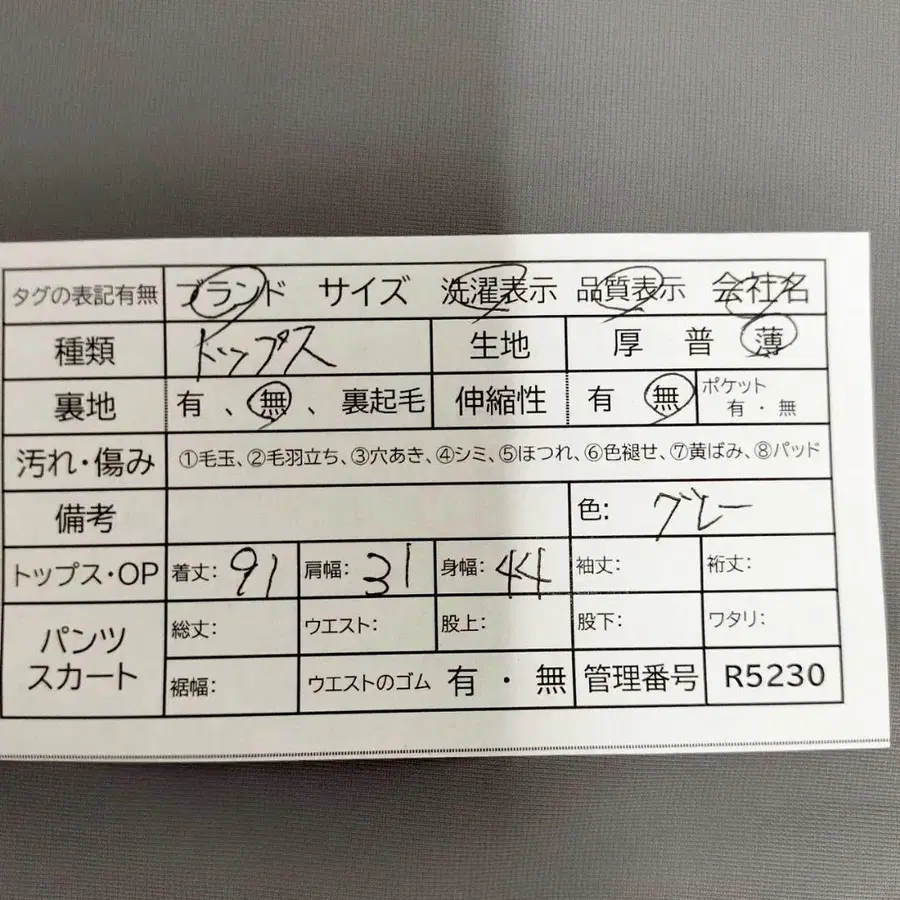 タグの表記有無 ブランド サイズ 洗濯表示 品質表示 会社名
種類 トップス 生地 厚 普 薄
裏地 有、無、裏起毛 伸縮性 有 無 ポケット 有・無
汚れ・傷み ①毛玉、②毛羽立ち、③穴あき、④シミ、⑤ほつれ、⑥色褪せ、⑦黄ばみ、⑧パッド
備考 色: グレー
トップス・OP 着丈: 91 肩幅: 31 身幅: 44 袖丈: 裄丈:
パンツ スカート 総丈: ウエスト: 股上: 股下: ワタリ:
裾幅: ウエストのゴム 有・無 管理番号 R5230